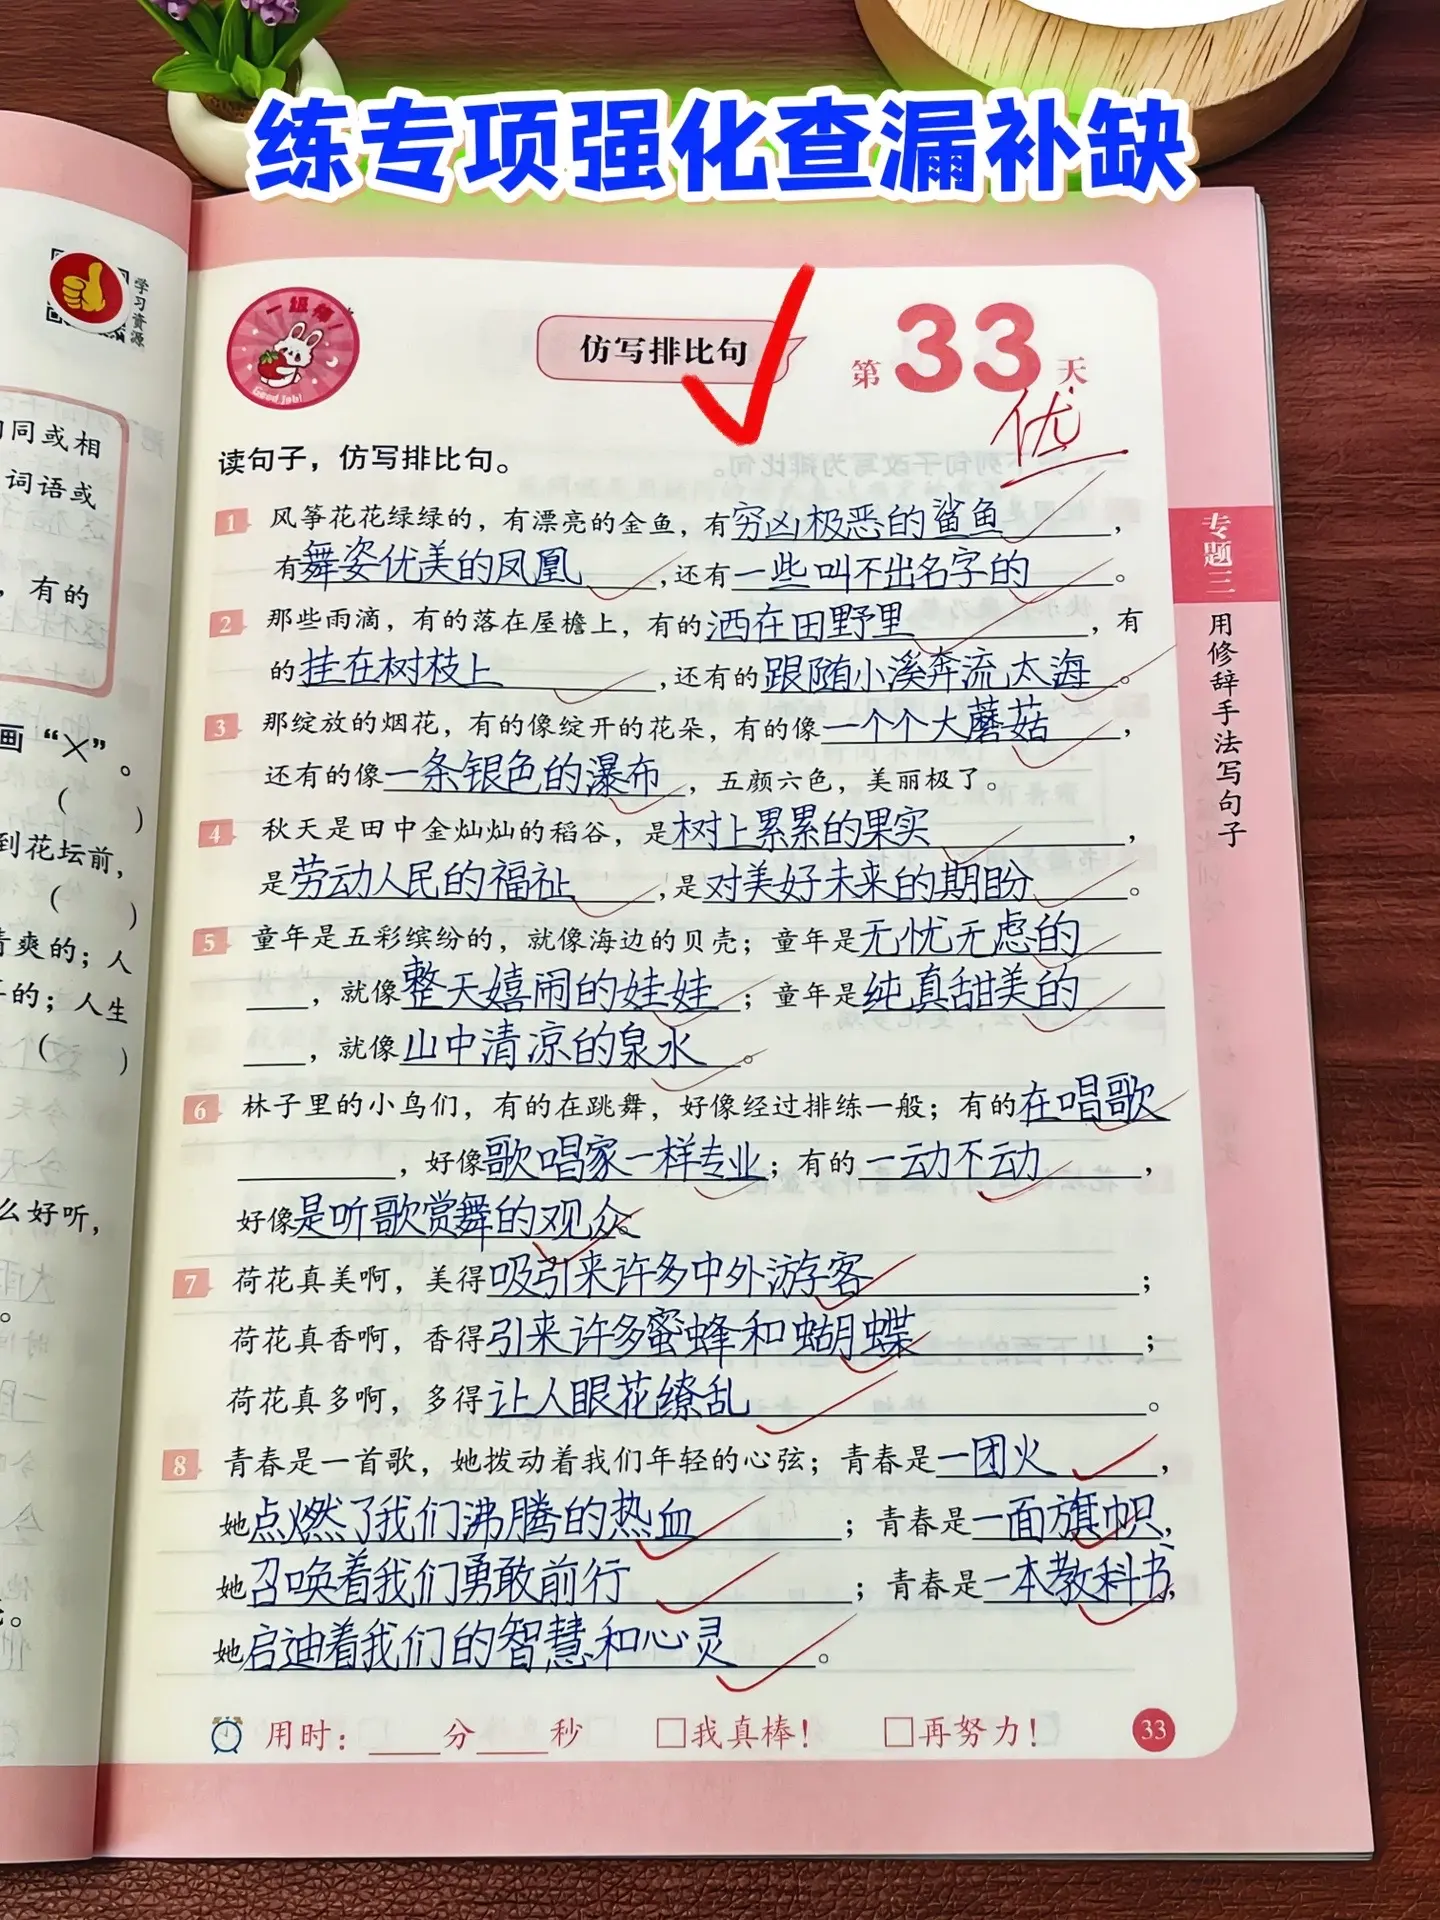 练专项强化查漏补缺
学习资源
一级棒!
Good job!
仿写排比句
第33天
优
同或相
词语或
，有的
画“×”。
( )
到花坛前，
( )
清爽的；人
的；人生
( )
么好听，
读句子，仿写排比句。
1 风筝花花绿绿的，有漂亮的金鱼，有穷凶极恶的鲨鱼，
有舞姿优美的凤凰，还有一些叫不出名字的。
2 那些雨滴，有的落在屋檐上，有的洒在田野里，有
的挂在树枝上，还有的跟随小溪奔流大海。
3 那绽放的烟花，有的像绽开的花朵，有的像一个个大蘑菇，
还有的像一条银色的瀑布，五颜六色，美丽极了。
4 秋天是田中金灿灿的稻谷，是树上累累的果实，
是劳动人民的福祉，是对美好未来的期盼。
5 童年是五彩缤纷的，就像海边的贝壳；童年是无忧无虑的
，就像整天嬉闹的娃娃；童年是纯真甜美的
，就像山中清凉的泉水。
6 林子里的小鸟们，有的在跳舞，好像经过排练一般；有的在唱歌
，好像歌唱家一样专业；有的一动不动，
好像是听歌赏舞的观众。
7 荷花真美啊，美得吸引来许多中外游客；
荷花真香啊，香得引来许多蜜蜂和蝴蝶；
荷花真多啊，多得让人眼花缭乱。
8 青春是一首歌，她拨动着我们年轻的心弦；青春是一团火，
她点燃了我们沸腾的热血；青春是一面旗帜，
她召唤着我们勇敢前行；青春是一本教科书，
她启迪着我们的智慧和心灵。
用时：____分____秒 □我真棒！ □再努力！
33
专题三 用修辞手法写句子